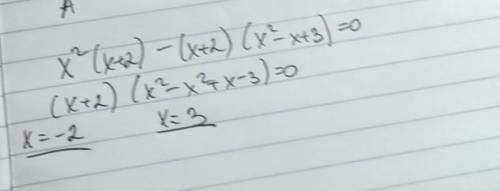 A
x²(x+2) - (x+2) (x²-x+3)=0
(x+2) (x²-x²+x-3)=0
x=-2 x=3